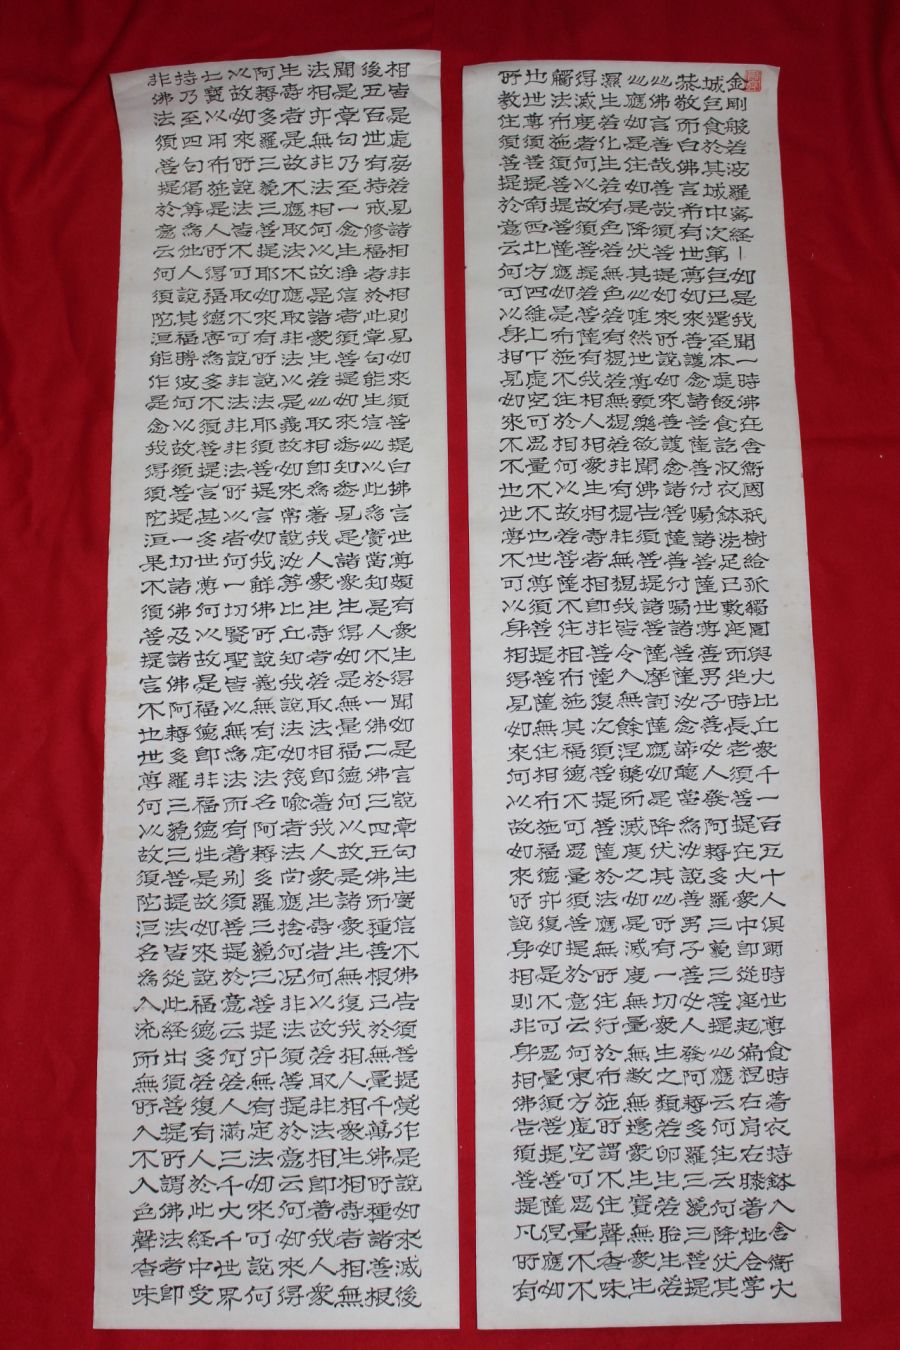 金剛般若波羅蜜経｜如是我聞一時佛在舍衛國祇樹給孤獨園與大比丘衆千一百五十人俱爾時世尊食時着衣持鉢入舍衛大
城乞食於其城中次第乞已還至本處飯食訖収衣鉢洗足已敷座而坐時長老須菩提在大衆中即從座起偏袒右肩右膝着地合掌
恭敬而白佛言希有世尊如來善護念諸菩薩善付囑諸菩薩世尊善男子善女人發阿耨多羅三藐三菩提心應云何住云何降伏其
心佛言善哉善哉須菩提如來所說如來護念諸菩薩善付囑諸菩薩念諦聽當為汝說善男子善女人發阿耨多羅三藐三菩提
心應如是住如是降伏其心唯然世尊願樂欲聞佛告須菩提諸菩薩摩訶薩應如是降伏其心所有一切衆生之類若卵生若胎生若
濕生若化生若有色若無色若有想若無想若非有想非無想我皆令入無餘涅槃而滅度之如是滅度無量無數無邊衆生實無衆生
得滅度者何以故須菩提若菩薩有我相人相衆生相壽者相即非菩薩復次須菩提菩薩於法應無所住行於布施所謂不住聲香味
觸法布施須菩提菩薩應如是布施不住於相何以故若菩薩不住相布施其福德不可思量須菩提於意云何東方虛空可思量不
也世尊須菩提南西北方四維上下虛空可思量不不也世尊須菩提菩薩無住相布施福德亦復如是不可思量須菩提菩薩但應如
所教住須菩提於意云何可以身相見如來不不也世尊不可以身相得見如來何以故如來所說身相則非身相佛告須菩提凡所有
相皆是虛妄若見諸相非相則見如來須菩提白佛言世尊頗有衆生得聞如是言說章句生實信不佛告須菩提莫作是說如來滅後
後五百世有持戒修福者於此章句能生信心以此為實當知是人不於一佛二佛三四五佛而種善根已於無量千萬佛所種諸善根
聞是章句乃至一念生淨信者須菩提如來悉知悉見是諸衆生得如是無量福德何以故是諸衆生無復我相人相衆生相壽者相無
法相亦無非法相何以故是諸衆生若心取相即為着我人衆生壽者若取法相即着我人衆生壽者何以故若取非法相即着我人衆
生壽者是故不應取法不應取非法以是義故如來常說汝等比丘知我說法如筏喻者法尚應捨何況非法須菩提於意云何如來得
阿耨多羅三藐三菩提耶如來有所說法耶須菩提言如我解佛所說義無有定法名阿耨多羅三藐三菩提亦無有定法如來可說何
以故如來所說法皆不可取不可說非法非非法所以者何一切賢聖皆以無為法而有差別須菩提於意云何若人滿三千大千世界
七寶以用布施是人所得福德寧為多不須菩提言甚多世尊何以故是福德即非福德性是故如來說福德多若復有人於此経中受
持乃至四句偈等為他人說其福勝彼何以故須菩提一切諸佛及諸佛阿耨多羅三藐三菩提法皆從此経出須菩提所謂佛法者即
非佛法須菩提於意云何須陀洹能作是念我得須陀洹果不須菩提言不也世尊何以故須陀洹名為入流而無所入不入色聲香味